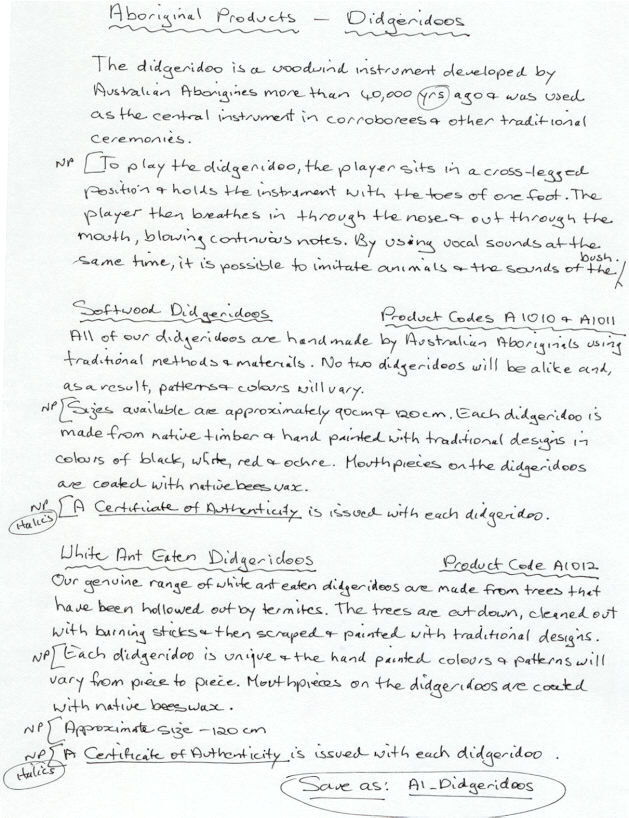 Aboriginal Products – Didgeridoos
The didgeridoo is a woodwind instrument developed by
Australian Aborigines more than 40,000 yrs ago & was used
as the central instrument in corroborees & other traditional
ceremonies.
NP [To play the didgeridoo, the player sits in a cross-legged
position & holds the instrument with the toes of one foot. The
player then breathes in through the nose & out through the
mouth, blowing continuous notes. By using vocal sounds at the
same time, it is possible to imitate animals & the sounds of the / bush.
Softwood Didgeridoos Product Codes A1010 & A1011
All of our didgeridoos are handmade by Australian Aboriginals using
traditional methods & materials. No two didgeridoos will be alike and,
as a result, patterns & colours will vary.
NP [Sizes available are approximately 90cm & 120cm. Each didgeridoo is
made from native timber & hand painted with traditional designs in
colours of black, white, red & ochre. Mouthpieces on the didgeridoos
are coated with native bees wax.
NP [A Certificate of Authenticity is issued with each didgeridoo.
Italics
White Ant Eaten Didgeridoos Product Code A1012
Our genuine range of white ant eaten didgeridoos are made from trees that
have been hollowed out by termites. The trees are cut down, cleaned out
with burning sticks & then scraped & painted with traditional designs.
NP [Each didgeridoo is unique & the hand painted colours & patterns will
vary from piece to piece. Mouthpieces on the didgeridoos are coated
with native bees wax.
NP [Approximate size – 120 cm
NP [A Certificate of Authenticity is issued with each didgeridoo.
Italics
Save as: A1_Didgeridoos